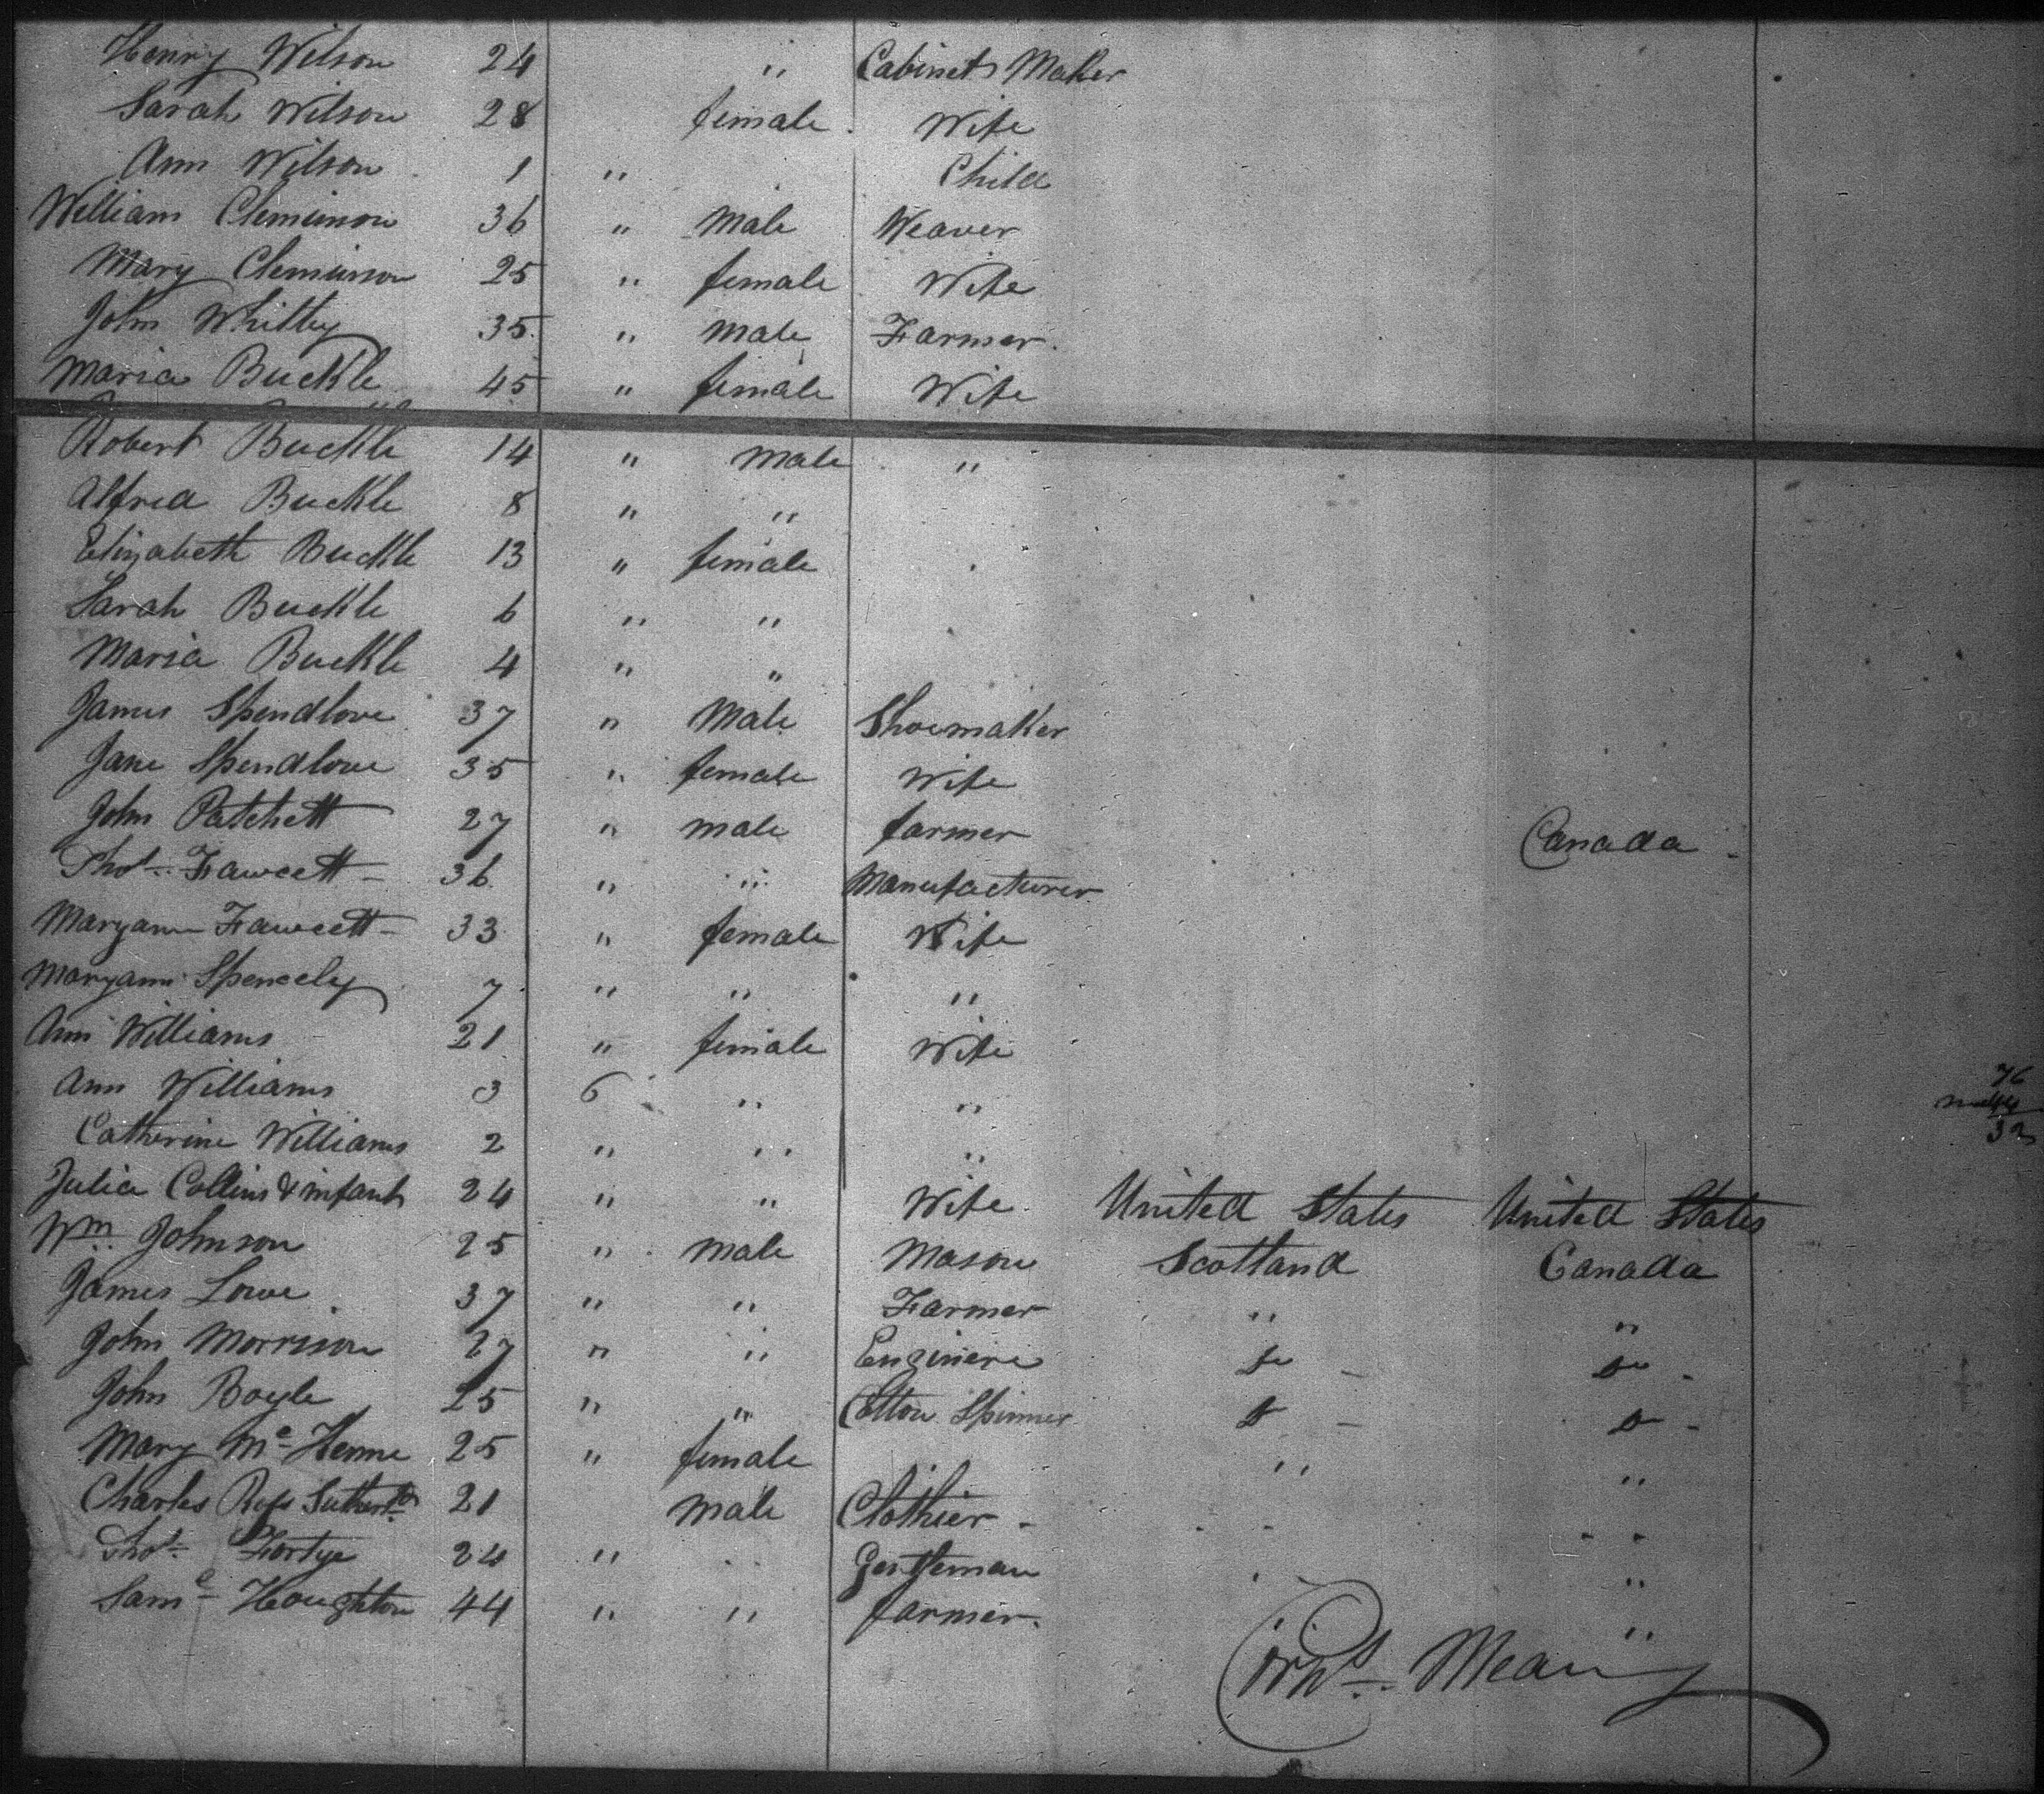 Henry Wilson 24 " Cabinet Maker
Sarah Wilson 28 female Wife
Ann Wilson 1 " Child
William Cleminson 36 " Male Weaver
Mary Cleminson 25 " female Wife
John Whitby 35 " Male Farmer
Maria Buckle 45 " female Wife
Robert Buckle 14 " Male "
Alfred Buckle 8 " "
Elizabeth Buckle 13 " female
Sarah Buckle 6 " "
Maria Buckle 4 " "
James Spendlove 37 " Male Shoemaker
Jane Spendlove 35 " female Wife
John Patchett 27 " male farmer Canada
Thos. Fawcett 36 " " Manufacturer
Maryann Fawcett 33 " female Wife
Maryann Spencely 7 " " "
Ann Williams 21 " female Wife
Ann Williams 3 6 " "
76
44
32
Catherine Williams 2 " " "
Julia Collins & infant 24 " " Wife United States United States
Wm. Johnson 25 " male Mason Scotland Canada
James Lowe 37 " " Farmer " "
John Morrison 27 " " Enginere Do Do
John Boyle 25 " " Cotton Spinner Do Do
Mary Mc Henne 25 " female " "
Charles Ross Sutherld 21 male Clothier " "
Thos. Fortye 24 " Gentleman "
Saml Houghton 44 " " farmer "
Corns. Meany